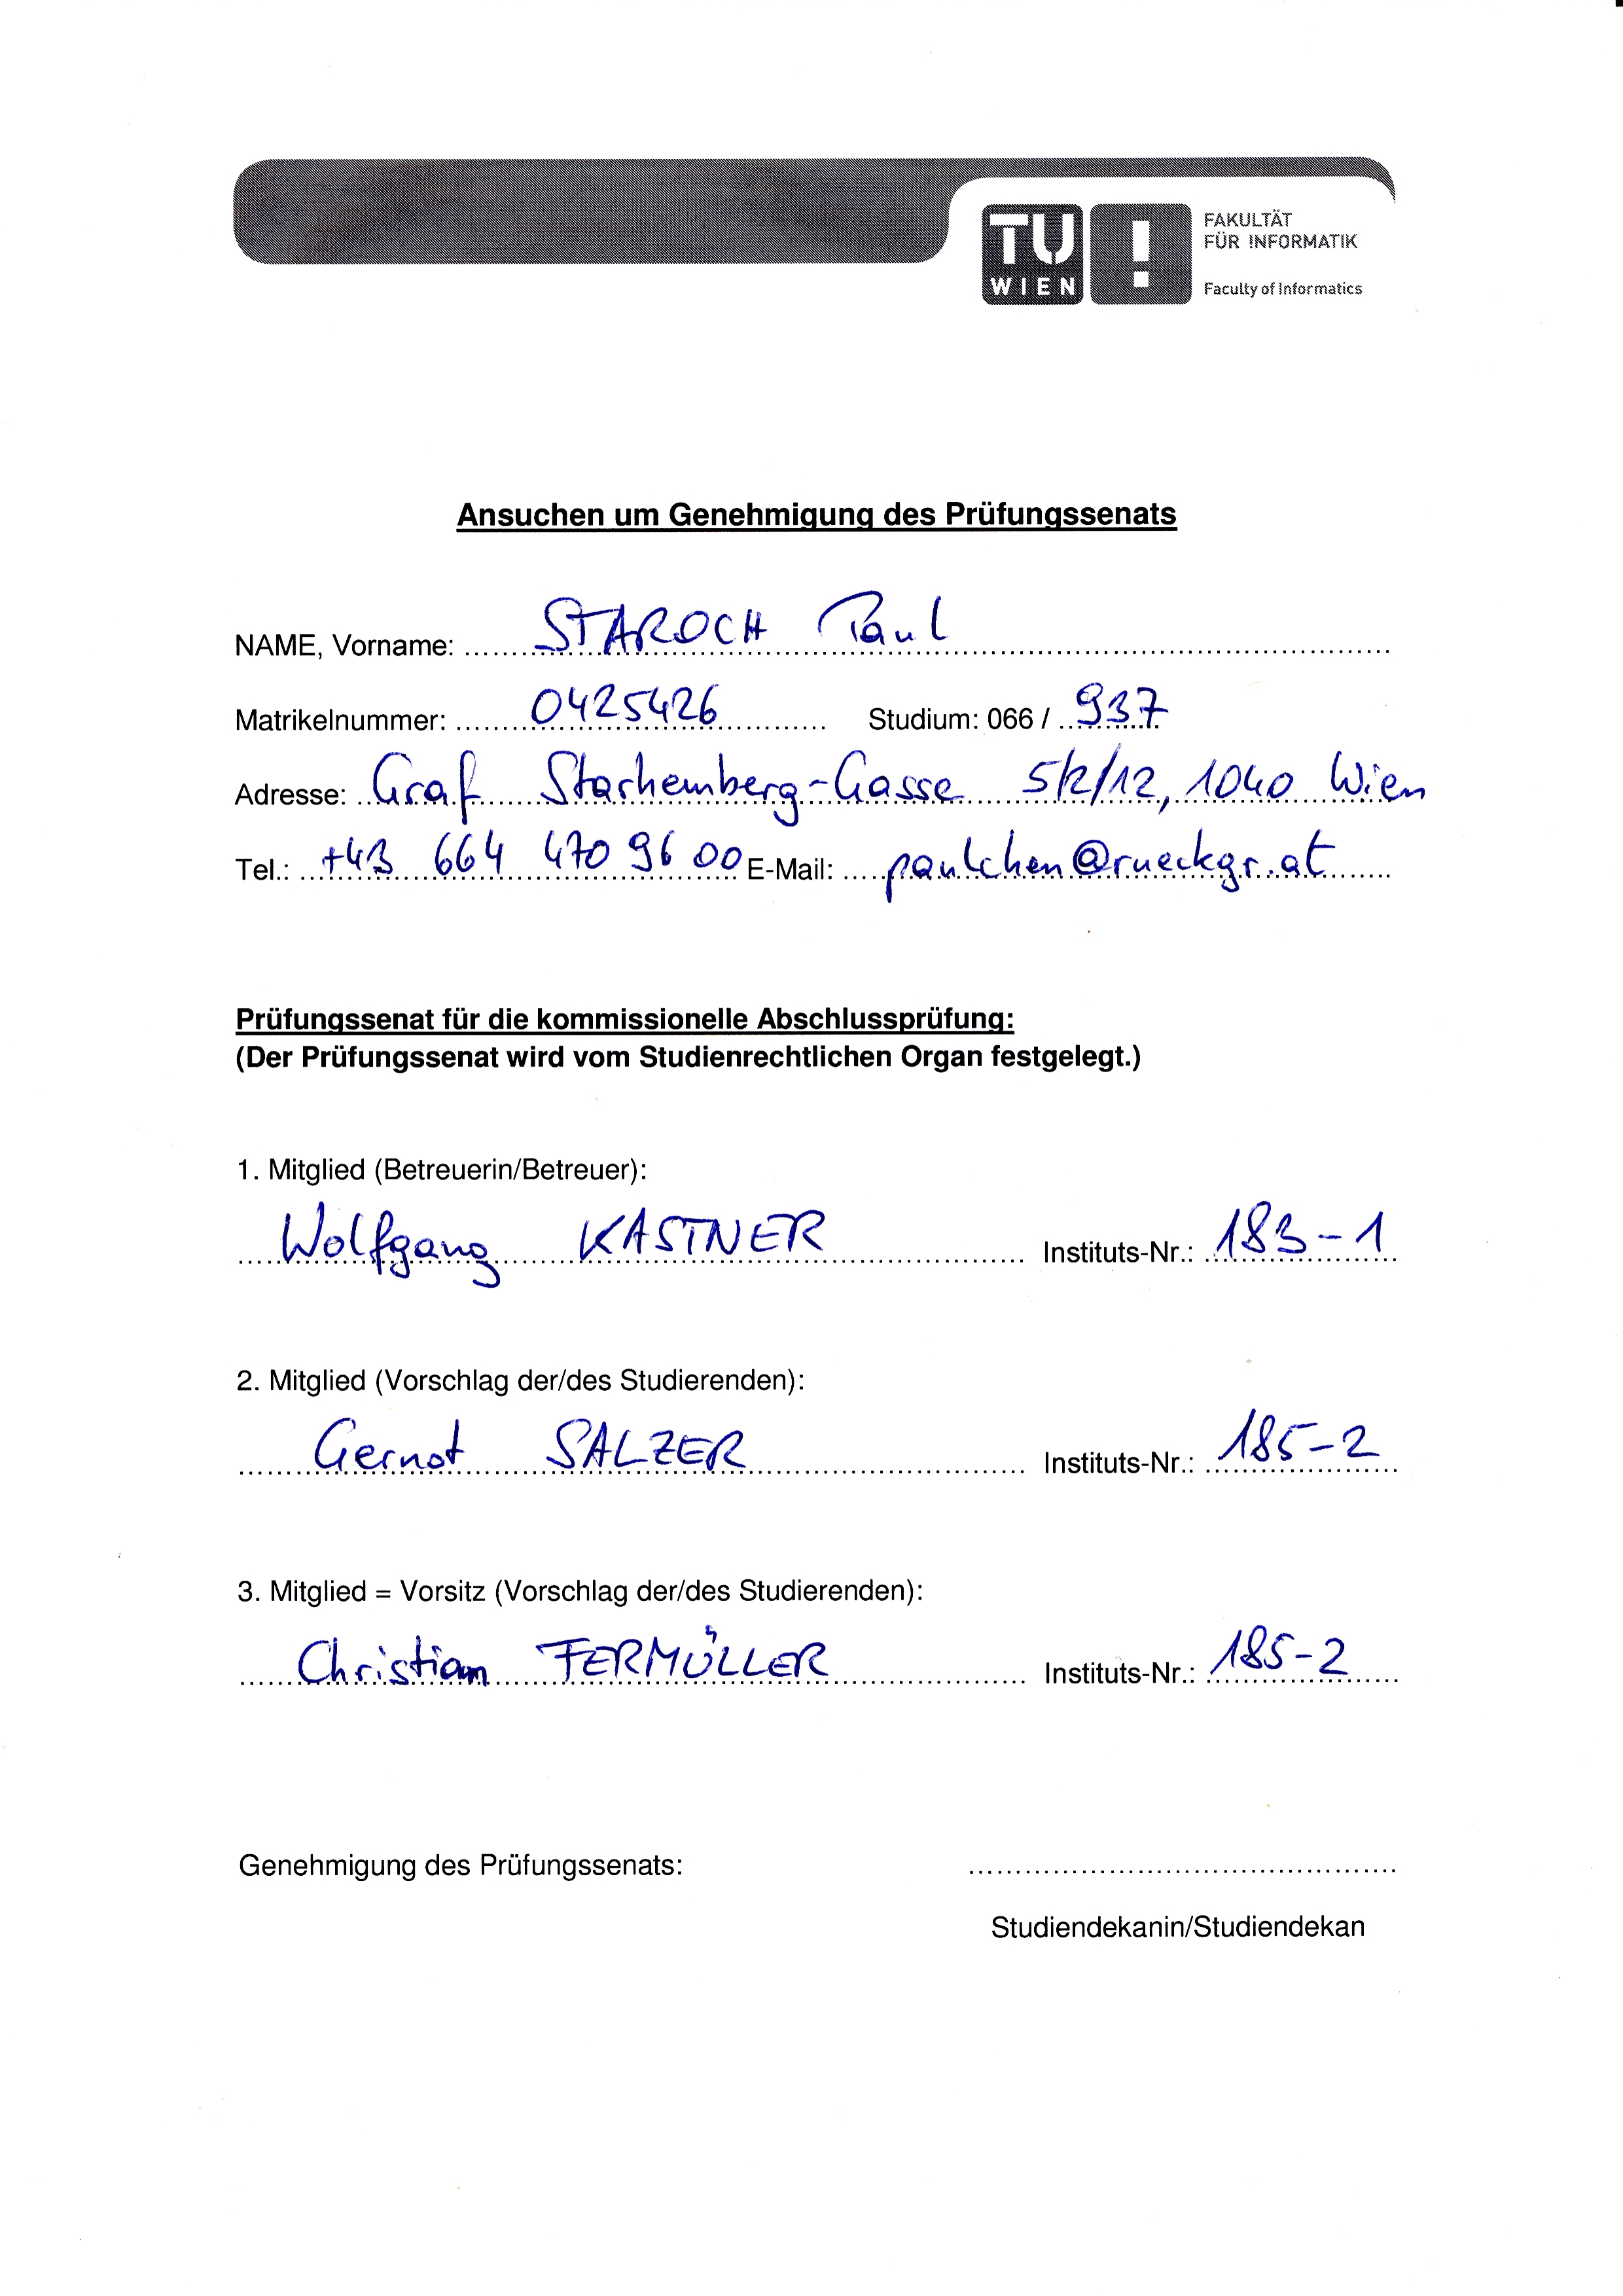 TU
WIEN
!
FAKULTÄT
FÜR !NFORMATIK
Faculty of Informatics
Ansuchen um Genehmigung des Prüfungssenats
NAME, Vorname: STAROCH Paul
Matrikelnummer: 0425426 Studium: 066 / 937
Adresse: Graf Starhemberg-Gasse 5/2/12, 1040 Wien
Tel.: +43 664 470 96 00 E-Mail: paulchen@rueckgr.at
Prüfungssenat für die kommissionelle Abschlussprüfung:
(Der Prüfungssenat wird vom Studienrechtlichen Organ festgelegt.)
1. Mitglied (Betreuerin/Betreuer):
Wolfgang KASTNER Instituts-Nr.: 183-1
2. Mitglied (Vorschlag der/des Studierenden):
Gernot SALZER Instituts-Nr.: 185-2
3. Mitglied = Vorsitz (Vorschlag der/des Studierenden):
Christian FERMÜLLER Instituts-Nr.: 185-2
Genehmigung des Prüfungssenats:
Studiendekanin/Studiendekan